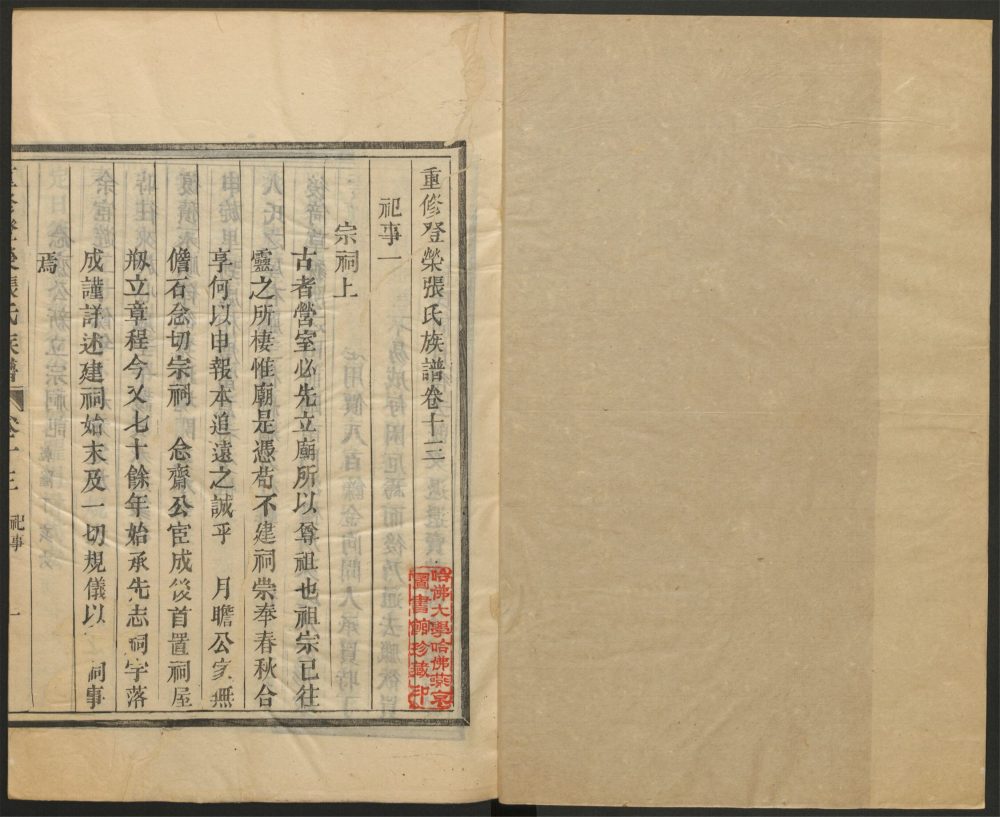 重修登榮張氏族譜卷十三
祀事一
宗祠上
古者營室必先立廟所以尊祖也祖宗已往
靈之所棲惟廟是憑苟不建祠崇奉春秋合
享何以申報本追遠之誠乎 月瞻公家無
儋石念切宗祠 念齋公宦成後首置祠屋
剏立章程今又七十餘年始承先志祠宇落
成謹詳述建祠始末及一切規儀以 祠事
焉
張氏族譜 卷十三 祀事 一
哈佛大學哈佛燕京
圖書館珍藏印